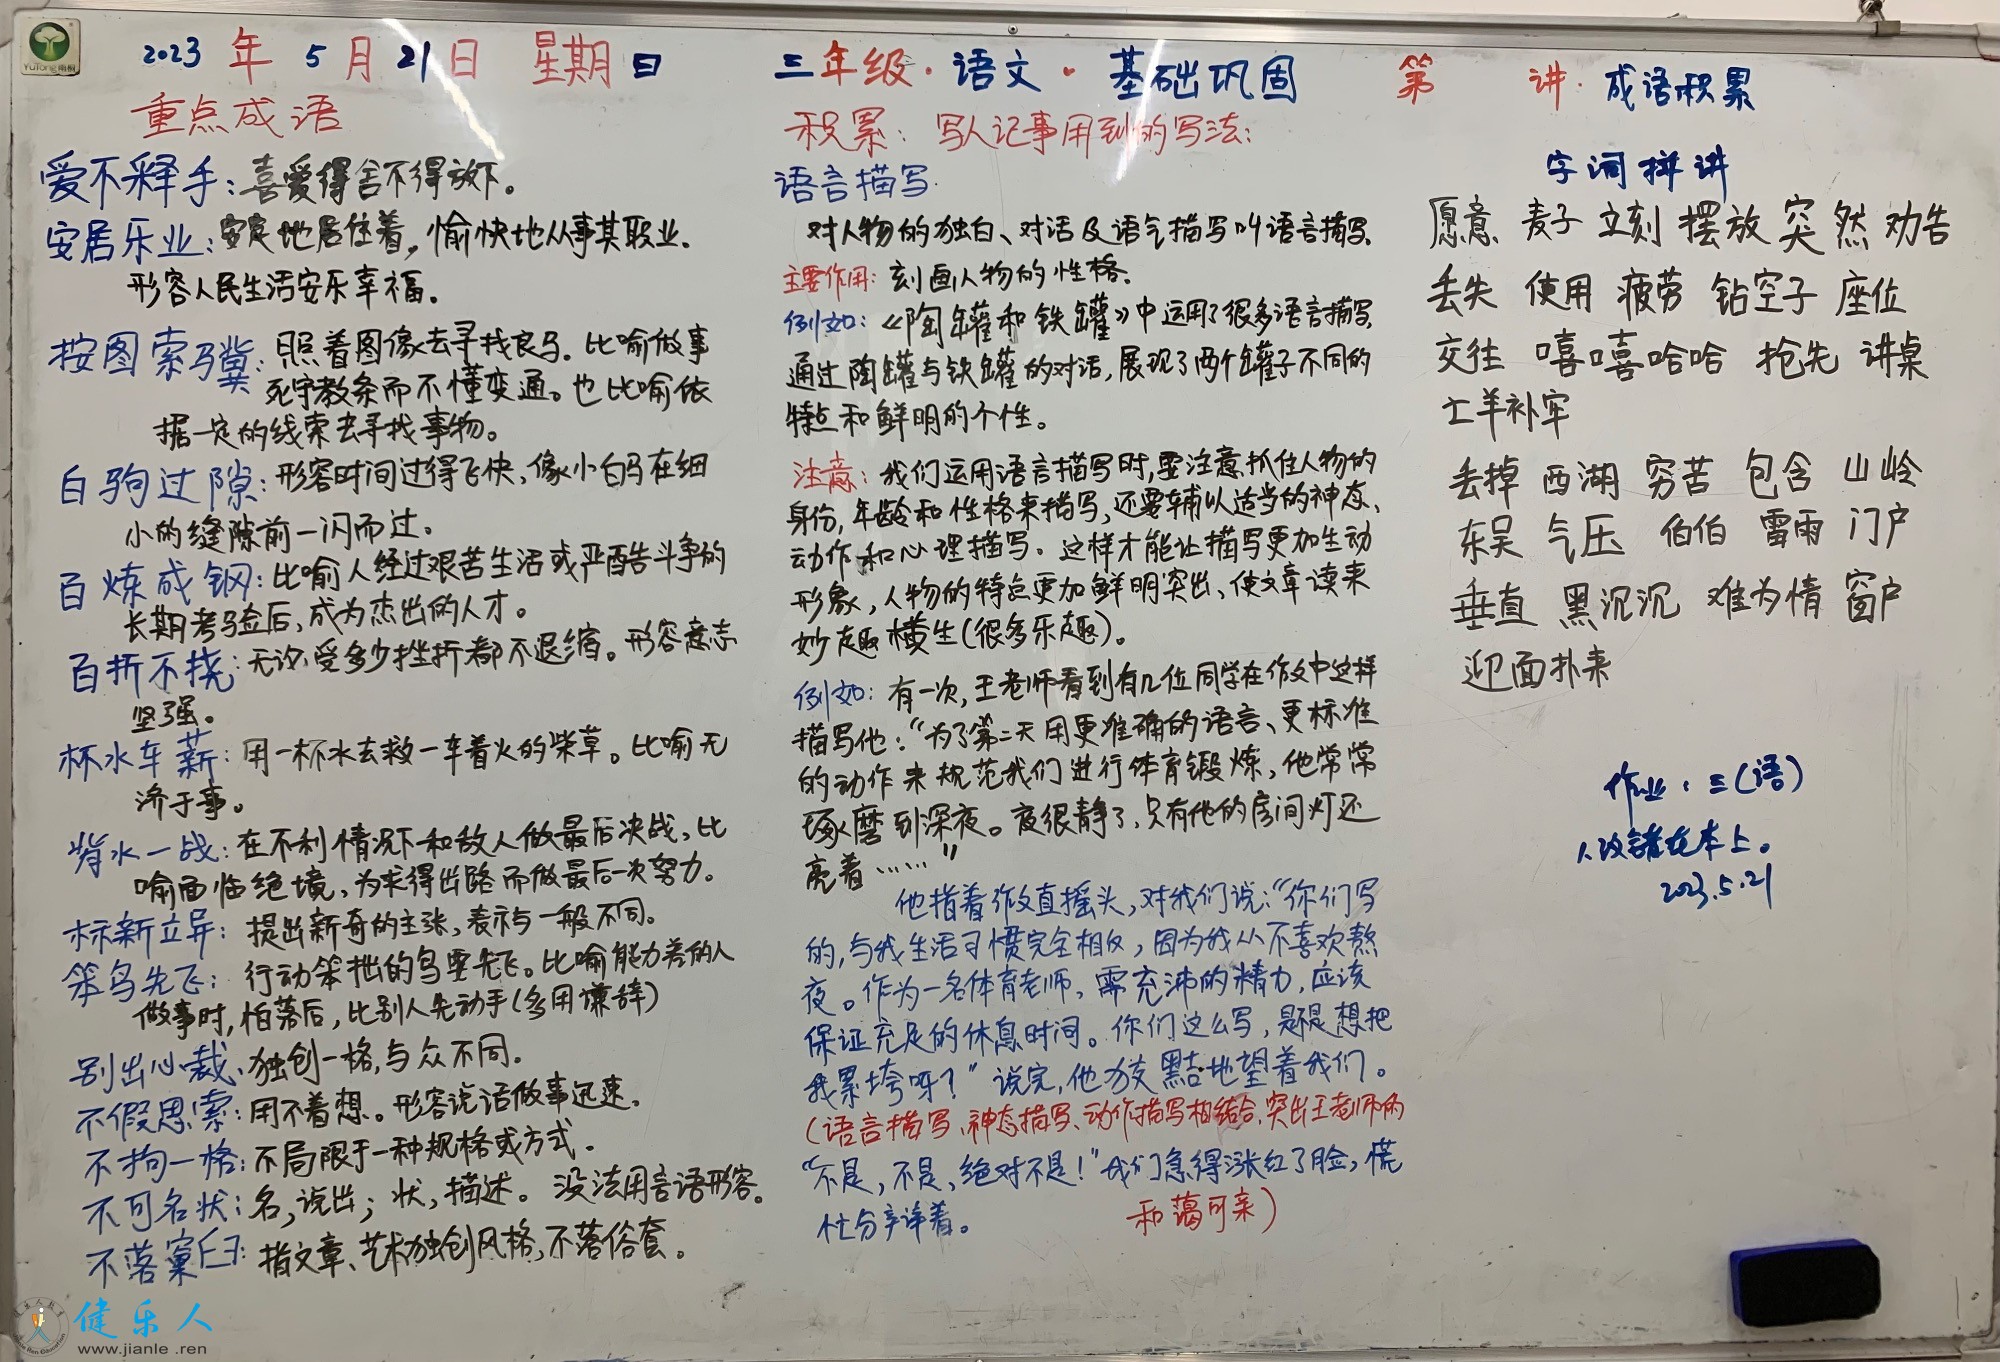 2023年5月21日 星期日 三年级·语文·基础巩固 第 讲·成语积累
重点成语
爱不释手：喜爱得舍不得放下。
安居乐业：安定地居住着，愉快地从事其职业.
形容人民生活安乐幸福.
按图索骥：照着图像去寻找良马。比喻做事
死守教条而不懂变通。也比喻依
据一定的线索去寻找事物。
白驹过隙：形容时间过得飞快,像小白马在细
小的缝隙前一闪而过.
百炼成钢：比喻人经过艰苦生活或严酷斗争的
长期考验后,成为杰出的人才。
百折不挠：无论受多少挫折都不退缩。形容意志
坚强。
杯水车薪：用一杯水去救一车着火的柴草。比喻无
济于事。
背水一战：在不利情况下和敌人做最后决战,比
喻面临绝境,为求得出路而做最后一次努力。
标新立异：提出新奇的主张,表示与一般不同。
笨鸟先飞：行动笨拙的鸟要先飞。比喻能力差的人
做事时,怕落后,比别人先动手(多用谦辞)
别出心裁、独创一格,与众不同.
不假思索：用不着想。形容说话做事迅速.
不拘一格：不局限于一种规格或方式.
不可名状：名,说出；状,描述。没法用言语形容.
不落窠臼：指文章、艺术独创风格,不落俗套。
健乐人
www.jianle.ren
积累：写人记事用到的写法：
语言描写
对人物的独白、对话及语气描写叫语言描写.
主要作用：刻画人物的性格.
例如：《陶罐和铁罐》中运用了很多语言描写,
通过陶罐与铁罐的对话,展现了两个罐子不同的
特点和鲜明的个性。
注意：我们运用语言描写时,要注意抓住人物的
身份,年龄和性格来描写,还要辅以适当的神态、
动作和心理描写.这样才能让描写更加生动
形象,人物的特点更加鲜明突出、使文章读来
妙趣横生(很多乐趣)。
例如：有一次,王老师看到有几位同学在作文中这样
描写他：“为了第二天用更准确的语言、更标准
的动作来规范我们进行体育锻炼,他常常
琢磨到深夜。夜很静了,只有他的房间灯还
亮着……”
他指着作文直摇头,对我们说：“你们写
的,与我生活习惯完全相反,因为我从不喜欢熬
夜。作为一名体育老师,需充沛的精力,应该
保证充足的休息时间。你们这么写,是不是想把
我累垮呀？”说完,他故黠地望着我们。
(语言描写、神态描写、动作描写相结合,突出王老师的
“不是,不是、绝对不是！”我们急得涨红了脸,慌
忙分辛译着。 和蔼可亲)
字词拼讲
愿意 麦子 立刻 摆放 突然 劝告
丢失 使用 疲劳 钻空子 座位
交往 嘻嘻哈哈 抢先 讲桌
亡羊补牢
丢掉 西湖 穷苦 包含 山岭
东吴 气压 伯伯 雷雨 门户
垂直 黑沉沉 难为情 窗户
迎面扑来
作业：三(语)
1.改错在本上。
2023.5.21